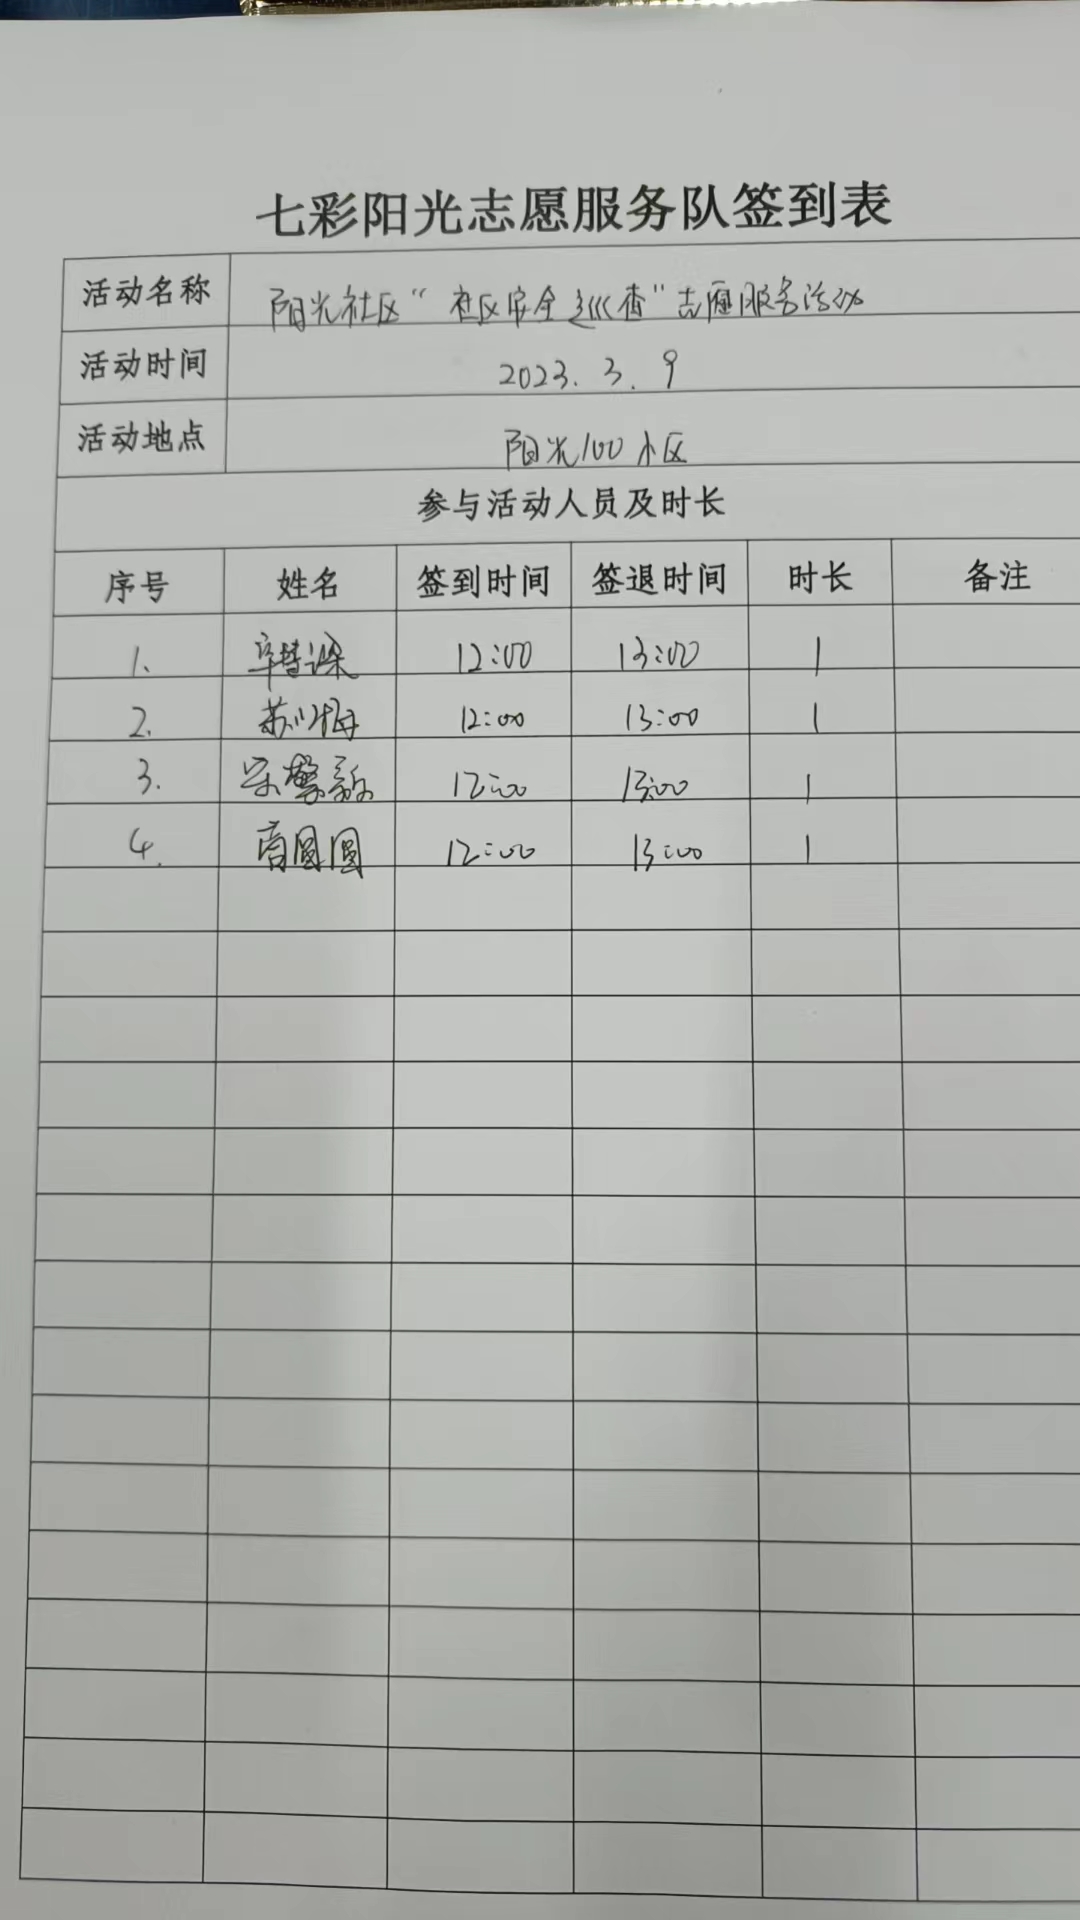 七彩阳光志愿服务队签到表
活动名称 阳光社区“社区安全巡查”志愿服务活动
活动时间 2023.3.9
活动地点 阳光100小区
参与活动人员及时长
序号 姓名 签到时间 签退时间 时长 备注
1. 12:00 13:00 1
2. 12:00 13:00 1
3. 12:00 13:00 1
4. 商圆圆 12:00 13:00 1